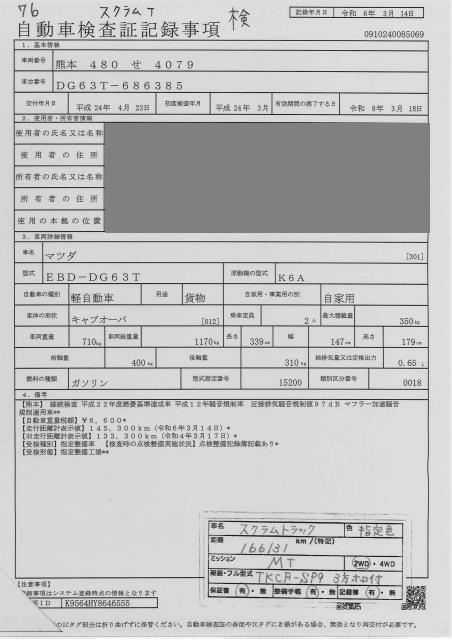 76 スクラムT 検
記録年月日 令和 6年 3月 14日
自動車検査証記録事項
0910240085069
1. 基本情報
車両番号 熊本 480 せ 4079
車台番号 DG63T-686385
交付年月日 平成 24年 4月 23日 初度検査年月 平成 24年 3月 有効期間の満了する日 令和 8年 3月 18日
2. 使用者・所有者情報
使用者の氏名又は名称
使用者の住所
所有者の氏名又は名称
所有者の住所
使用の本拠の位置
3. 車両詳細情報
車名 マツダ [301]
型式 EBD-DG63T 原動機の型式 K6A
自動車の種別 軽自動車 用途 貨物 自家用・事業用の別 自家用
車体の形状 キャブオーバ [012] 乗車定員 2人 最大積載量 350kg
車両重量 710kg 車両総重量 1170kg 長さ 339cm 幅 147cm 高さ 179cm
前軸重 400kg 後軸重 310kg 総排気量又は定格出力 0.65L
燃料の種類 ガソリン 型式指定番号 15200 類別区分番号 0018
4. 備考
【熊本】 継続検査 平成22年度燃費基準達成車 平成12年騒音規制車 近接排気騒音規制値97dB マフラー加速騒音
規制適用車**
【自動車重量税額】¥6,600*
【走行距離計表示値】145,300km(令和6年3月14日)*
【旧走行距離計表示値】133,300km(令和4年3月17日)*
【受検種別】指定整備車 【検査時の点検整備実施状況】点検整備記録簿記載あり*
【受検形態】指定整備工場**
車名 スクラムトラック 色 指定色
距離 166131 km/(特記)
ミッション MT 2WD・4WD
架装・フル型式 TKCA-SP9 3方扣付
保証書 有・無 整備手帳 有・無 記録簿 有・無
【注意事項】
記録事項はシステム登録時点の情報となります
ID K9564HY8646555
のICタグ部分は折り曲げずに保管ください。自動車検査証の券面やICタグにき損がある場合、無効となり再交付が必要です。